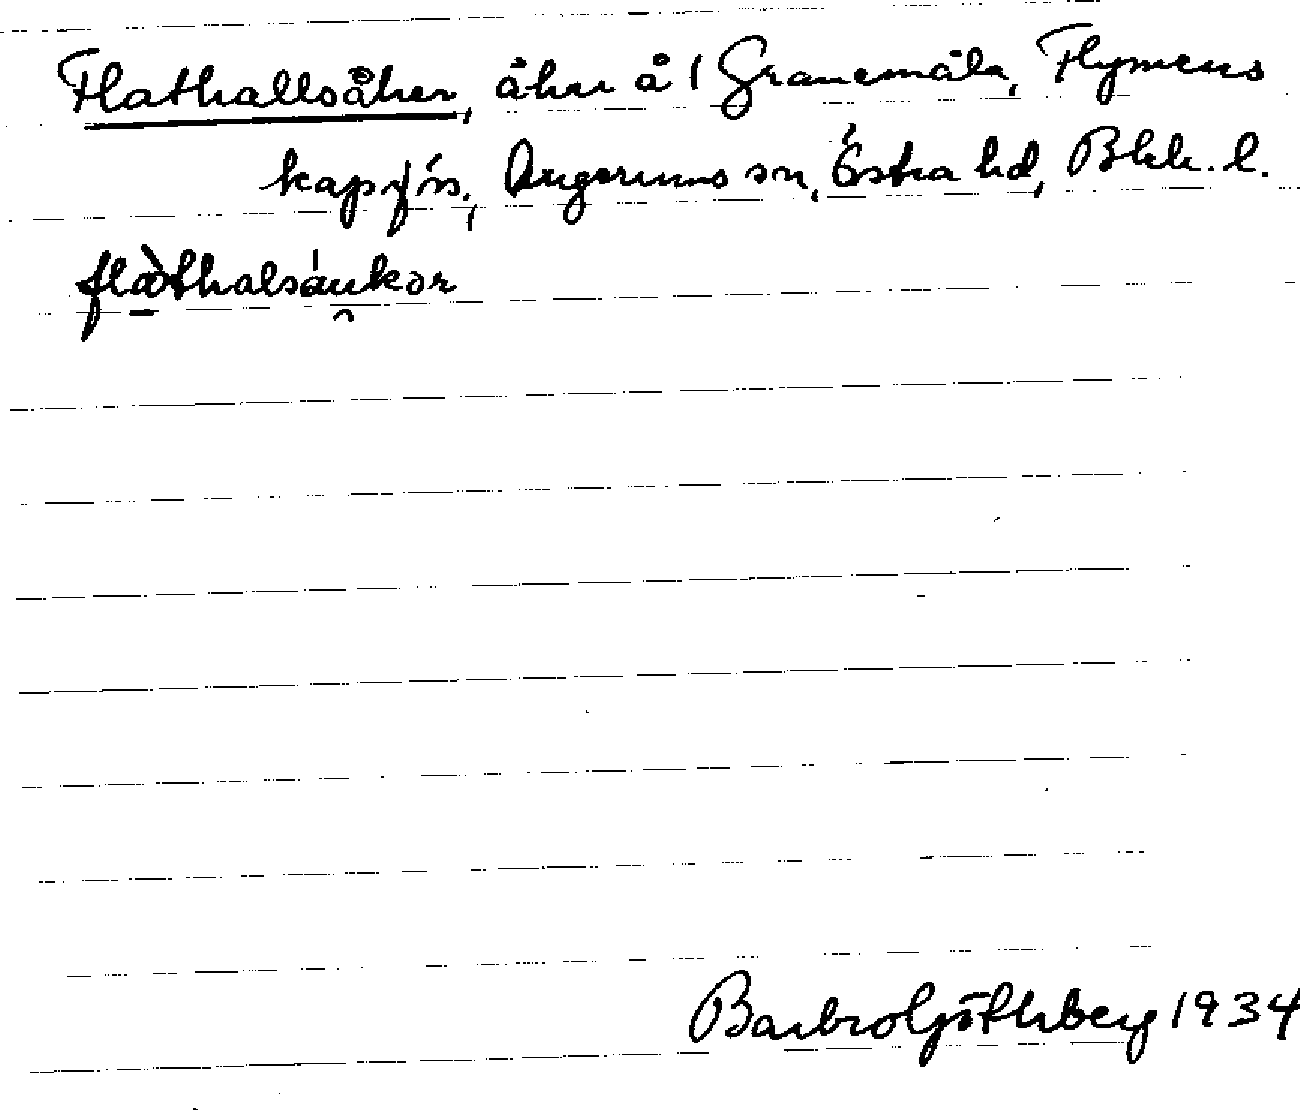 Flathallsåker, åker å 1 Granemåla, Flymens
kappförs., Augerums sn, Östra hd, Blek. l.
flàthalsáukər
Barbro Götherberg 1934